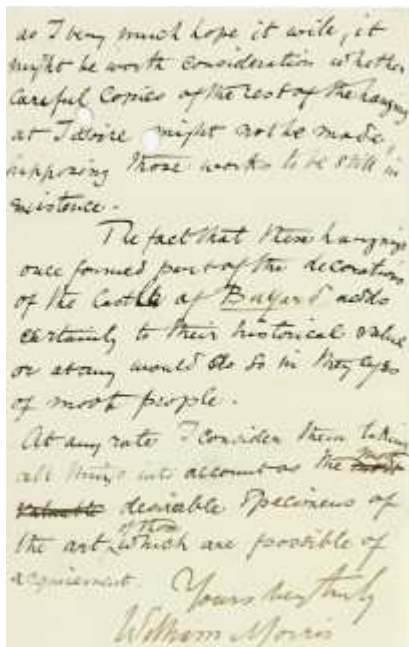 as I very much hope it will, it
might be worth consideration whether
Careful Copies of the rest of the hanging
at Issoire might not be made,
supposing those works to be still in
existence.
The fact that these hangings
once formed part of the decorations
of the Castle of Bayard adds
certainly to their historical value
or at any would do so in they eyes
of most people.
At any rate I consider them taking
all things into account as the most
valuable desirable specimens of
the art, of those which are possible of
acquirement.
Yours very truly
William Morris